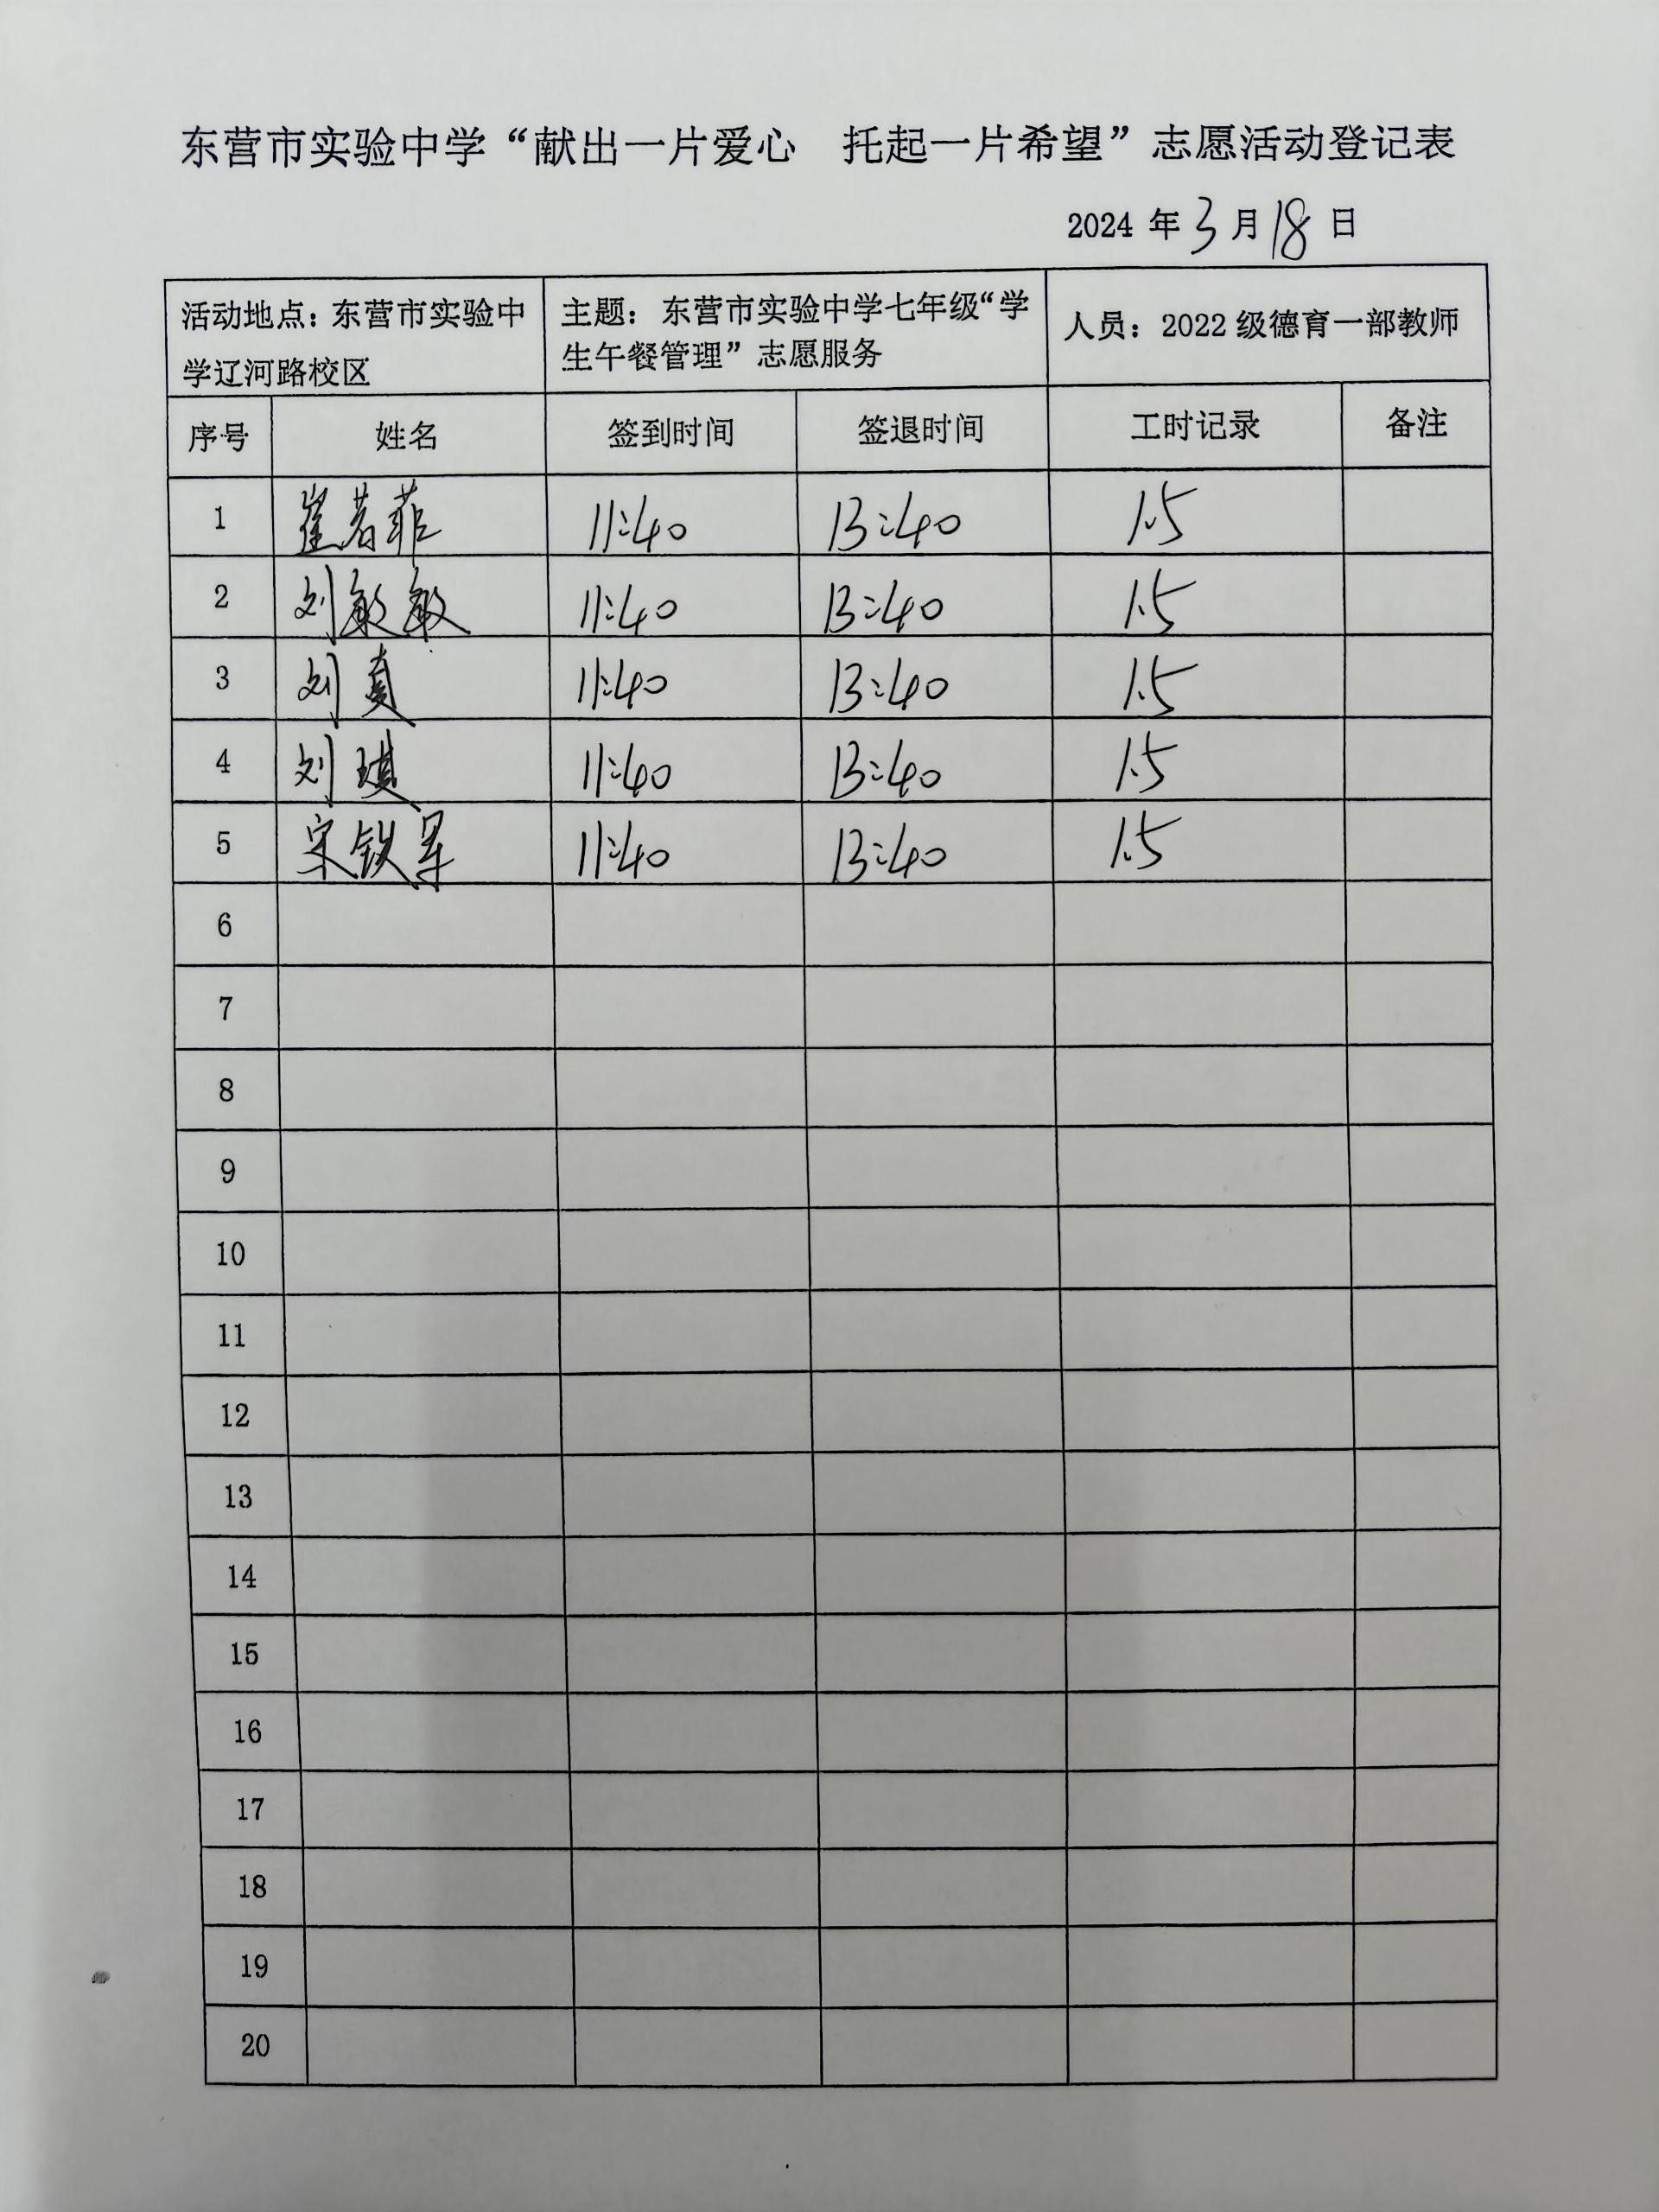 东营市实验中学“献出一片爱心 托起一片希望”志愿活动登记表
2024 年 3 月 18 日
活动地点：东营市实验中
学辽河路校区
主题：东营市实验中学七年级“学
生午餐管理”志愿服务
人员：2022 级德育一部教师
序号 姓名 签到时间 签退时间 工时记录 备注
1 崔若菲 11:40 13:40 1.5
2 刘敏敏 11:40 13:40 1.5
3 刘真 11:40 13:40 1.5
4 刘琪 11:40 13:40 1.5
5 宋铁军 11:40 13:40 1.5
6
7
8
9
10
11
12
13
14
15
16
17
18
19
20